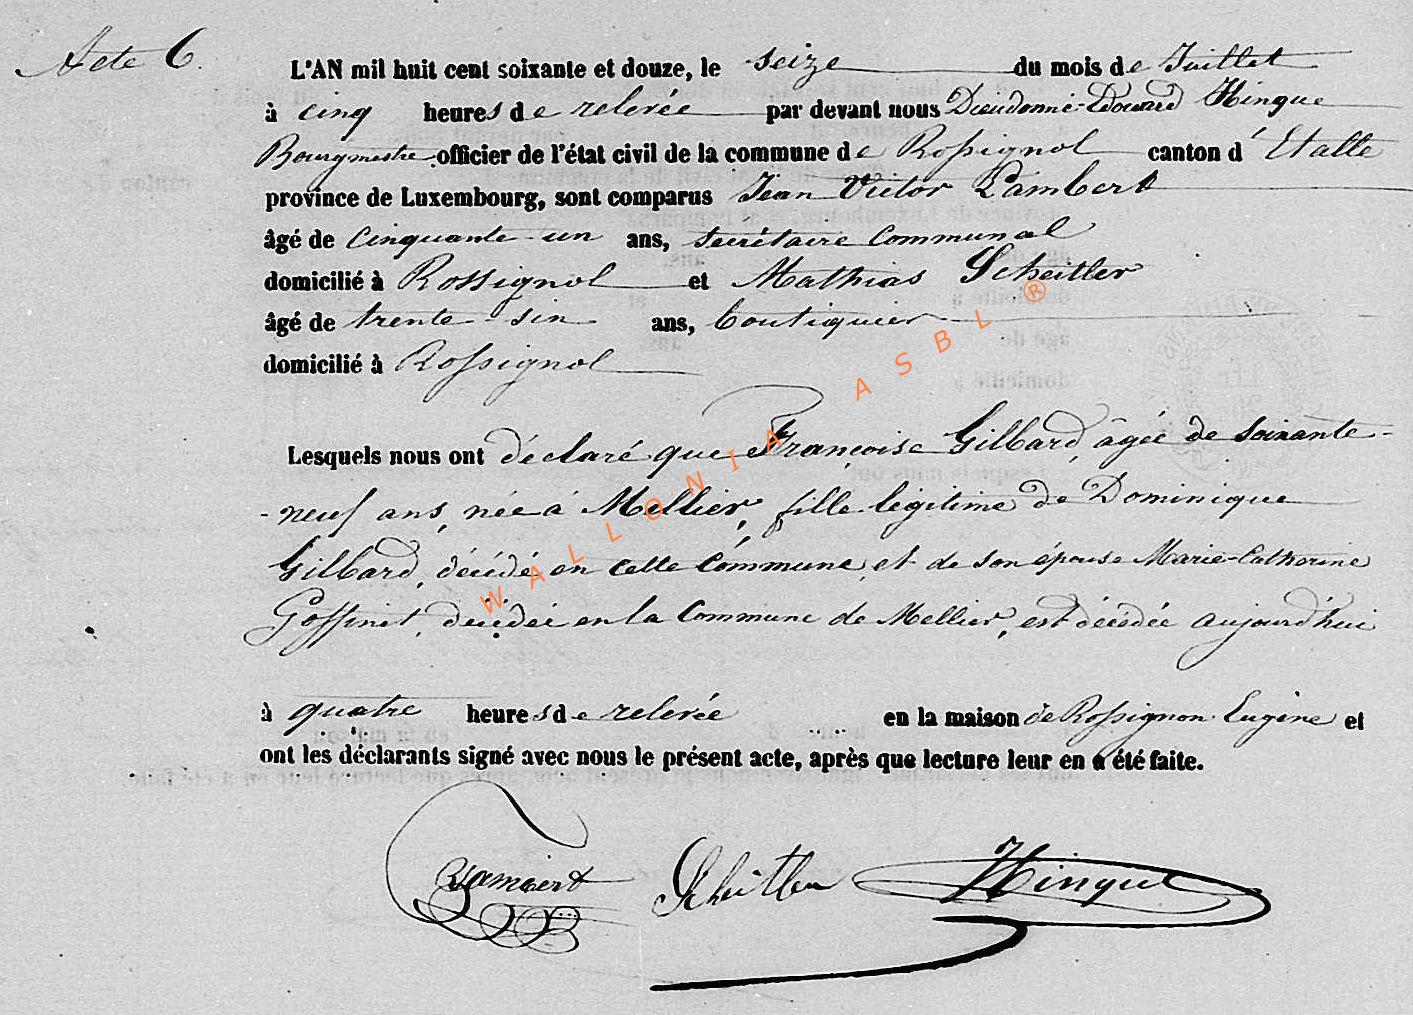 Acte 6.
L'AN mil huit cent soixante et douze, le seize du mois de Juillet
à cinq heures de relevée par devant nous Dieudonné-Edouard Hinque
Bourgmestre officier de l'état civil de la commune de Rossignol canton d'Etalle
province de Luxembourg, sont comparus Jean Victor Lambert
âgé de cinquante-un ans, secrétaire communal
domicilié à Rossignol et Mathias Scheitler
âgé de trente-six ans, boutiquier
domicilié à Rossignol
Lesquels nous ont déclaré que Françoise Gilbard, âgée de soixante-
-neuf ans, née à Mellier, fille légitime de Dominique
Gilbard, décédé en cette Commune, et de son épouse Marie-Catherine
Goffinet, décédée en la Commune de Mellier, est décédée aujourd'hui
à quatre heures de relevée en la maison de Rossignon Eugène et
ont les déclarants signé avec nous le présent acte, après que lecture leur en a été faite.
Lambert Scheitler Hinque
WALLONIA ASBL ®